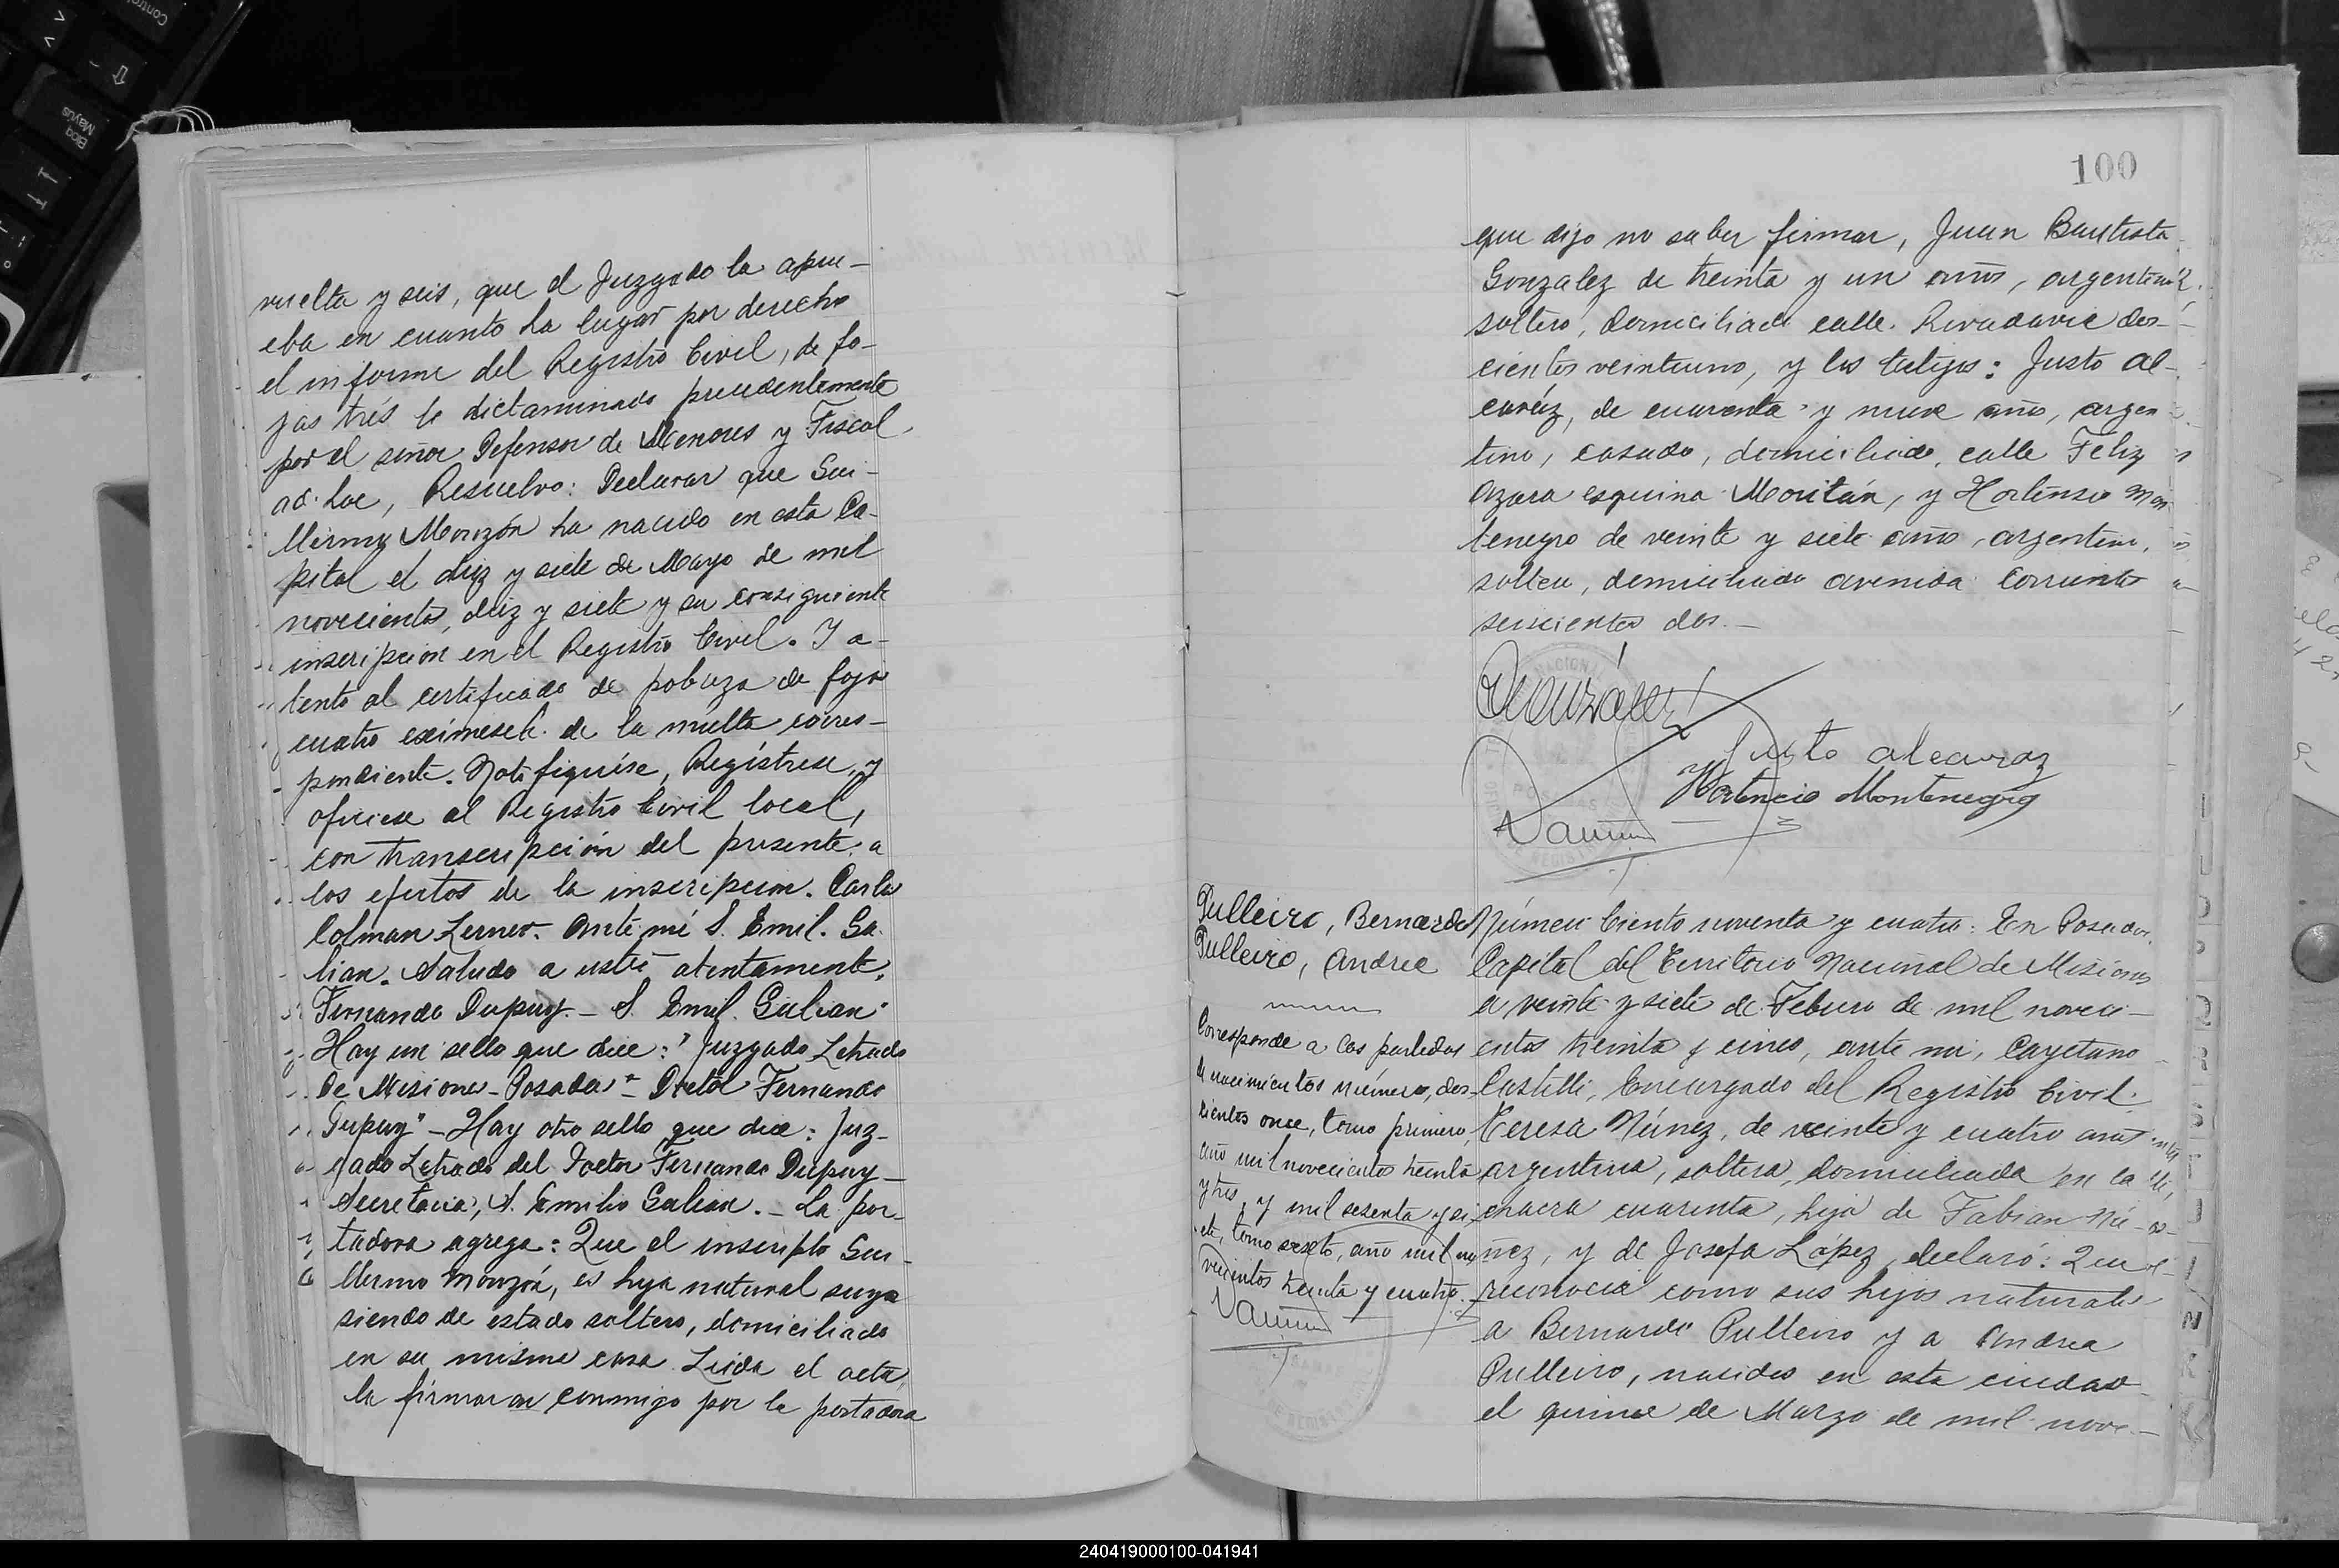 vuelta y seis, que el Juzgado la aprue-
eba en cuanto ha lugar por derecho
el informe del Registro Civil, de fo-
jas tres lo dictaminado precedentemente
por el señor Defensor de Menores y Fiscal
ad-hoc, Resuelvo: Declarar que Gui-
llermo Monzón ha nacido en esta Ca-
pital el diez y siete de Mayo de mil
novecientos diez y siete y su consiguiente
inscripcion en el Registro Civil. Y a-
tento al certificado de pobreza de foja
cuatro exímesele de la multa corres-
pondiente. Notifiquése, Regístrese, y
oficiese al Registro Civil local,
con transcripción del presente a
los efectos de la inscripcion. Carlos
Colman Lerner. Ante mí S. Emil. Ga-
lian. Saludo a usté atentamente.
Fernando Dupuy.- S. Emil. Galian"
Hay un sello que dice: "Juzgado Letrado
De Misiones-Posadas"- Doctor Fernando
Dupuy"- Hay otro sello que dice: Juz-
gado Letrado del Doctor Fernando Dupuy-
Secretaria, S. Emilio Galian.- La por-
tadora agrega: Que el inscripto Gui-
llermo Monzón, es hijo natural suyo
siendo de estado soltero, domiciliado
en su misma casa. Leida el acta,
la firmaron conmigo por la portadora
100
que dijo no saber firmar, Juan Bautista
Gonzalez de treinta y un años, argentino,
soltero, domiciliado calle Rivadavia dos-
cientos veintiuno, y los testigos: Justo Al-
caráz, de cuarenta y nueve años, argen-
tino, casado, domiciliado, calle Feliz
Azara esquina Moritán, y Hortensio Mon
tenegro de veinte y siete años, argentino,
soltero, domiciliado avenida Corrientes
seiscientos dos.-
JGonzález
Justo alcaraz
Hortencio Montenegro
Pulleiro, Bernardo
Pulleiro, Andrea
Corresponde a las partidas
de nacimientos número, dos-
cientos once, tomo primero,
año mil novecientos treinta
y tres, y mil sesenta y si-
ete, tomo sexto, año mil no-
vecientos treinta y cuatro.
Número Ciento noventa y cuatro: En Posadas,
Capital del Territorio Nacional de Misiones
a veinte y siete de Febrero de mil noveci-
entos treinta y cinco, ante mi, Cayetano
Castelli, Encargado del Registro Civil:
Teresa Núnez, de veinte y cuatro años
argentina, soltera, domiciliada en la
chacra cuarenta, hija de Fabian Nú-
ñez, y de Josefa López, declaró: Que
reconocia como sus hijos naturales
a Bernardo Pulleiro y a Andrea
Pulleiro, nacidos en esta ciudad
el quince de Marzo de mil nove-
240419000100-041941